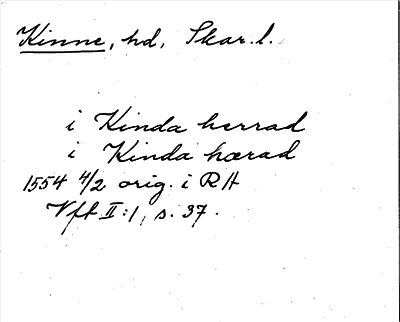 Kinne, hd, Skar. l.
i Kinda herrad
i Kinda hærad
1554 4/2 orig. i RA
Vft II:1, s. 37.